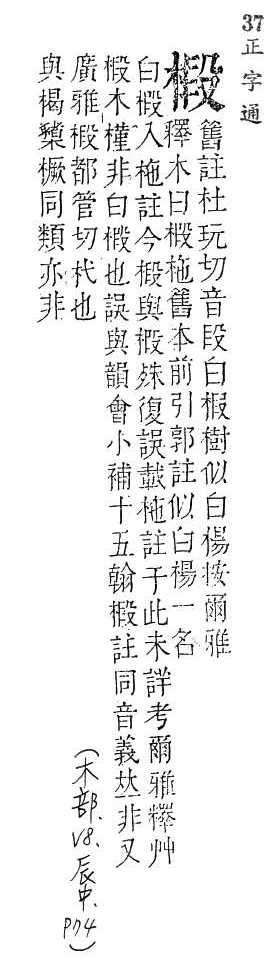 37正字通
椴
舊註杜玩切音段白椵樹似白楊按爾雅
釋木曰椴柂舊本前引郭註似白楊一名
白椴入柂註今椴與椵殊復誤載柂註于此未詳考爾雅釋艸
椴木槿非白椴也誤與韻會小補十五翰椴註同音義𠀤非又
廣雅椴都管切杙也
與楬橥橛同類亦非
(木部.V8.辰中.P74)